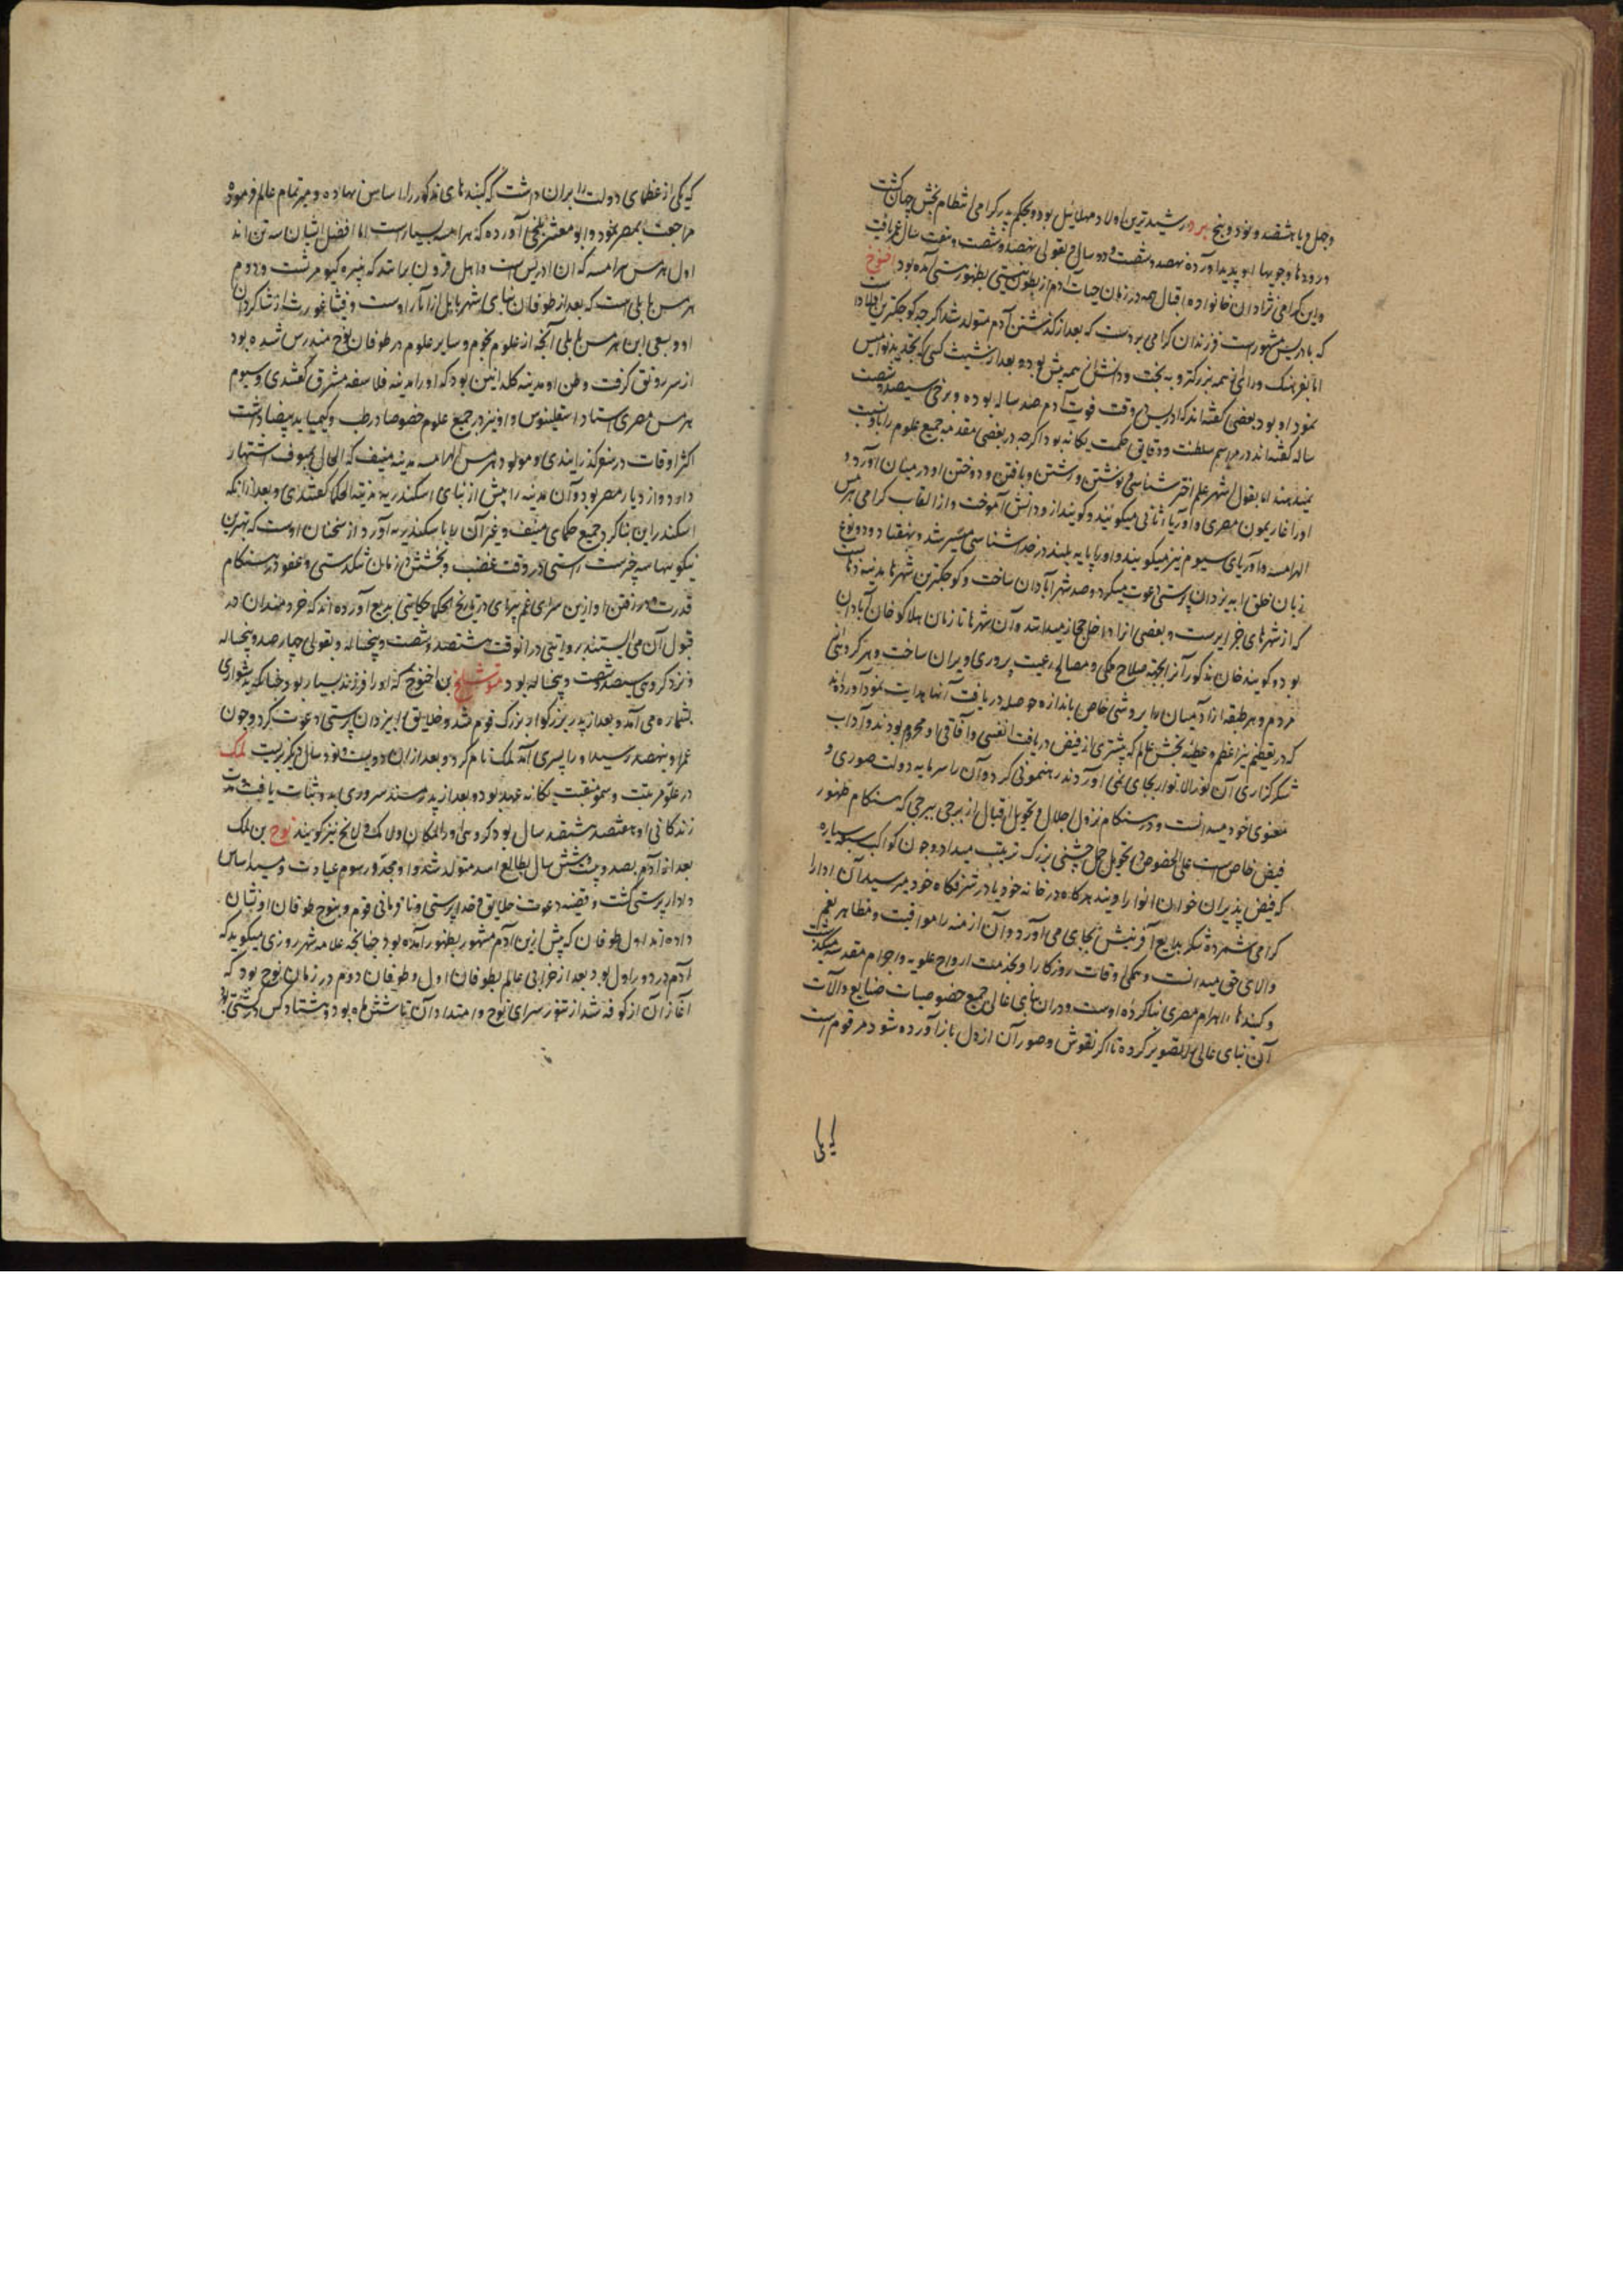 وچهل و یا هشتصد و نود و پنج یرد رشیدترین اولاد مهلائیل بود و بحکم پدر گرامی انتظام بخش جهان گشت
و رودها و جویها او پدید آورده نهصد و شصت و دو سال و بقولی نهصد و شصت و هفت سال عمر یافت
و این گرامی نژادان خانواده اقبال همه در زمان حیات آدم از بطون نیستی بظهور هستی آمده بود اخنوخ
که بادریس مشهور است فرزندان گرامی یرد است که بعد از گذشتن آدم متولد شد اگرچه کوچکترین اولاد
اما بفرهنگ و رای از همه بزرگتر و به بخت و دانش از همه پیش بود و بعد از شیث کسی که تجدید نوامیس
نمود او بود بعضی گفته‌اند که ادریس در وقت فوت آدم صد ساله بوده و برخی سیصد و شصت
ساله گفته‌اند در مراسم سلطنت و دقایق حکمت یگانه بود اگرچه در بعضی مقدمه جمیع علوم را باو نسبت
میدهند اما بقول اشهر علم اختر شناسی و نوشتن و رشتن و بافتن و دوختن او در میان آورد و
اورا غاریمون مصری و اوریاء ثانی میگویند و گویند ازو دانش آموخت و از القاب گرامی هرمس
الهرامسه و اوریای سیوم نیز میگویند و اورا پایه بلند در خدا شناسی میسر شد و بهفتاد و دو نوع
زبان خلق را به یزدان پرستی دعوت میکرد و صد شهر آبادان ساخت و کوچکترین شهرها مدینه رهاست
که از شهرهای جزایر است و بعضی انرا داخل حجاز میدانند و آن شهرها تا زمان هلاکو خان آبادان
بود و گویند خان مذکور آنرا بجهة صلاح ملکی و مصالح رعیت پروری ویران ساخت و هر گروهی
مردم و هر طبقه از آدمیان را بروشی خاص باندازه حوصله دریافت آنها هدایت نمود آورده‌اند
که در تعظیم نیر اعظم و عطیه بخش عالم که بیشتری از فیض دریافت انفسی و آفاقی او محروم بودند و آداب
شکر گذاری آن نور الانوار بجای نمی آوردند رهنمونی کرد و آن را سرمایه دولت صوری و
معنوی خود میدانست و در هنگام نزول اجلال و تحویل اقبال از برجی ببرجی که هنگام ظهور
فیض خاص است علی الخصوص در تحویل حمل جشنی بزرگ ترتیب میداد و چون کواکب سبعه سیاره
که فیض پذیران خوان انوار اویند هرگاه در خانه خود یا در شرفگاه خود میرسید آن اورا
گرامی شمرده شکر بدایع آفرینش بجای می آورد و آن ازمنه را مواقیت و مظاهر نعم
والای حق میدانست و همگی اوقات روزگار را بخدمت ارواح علویه و اجرام مقدسه میگذرانید
و گنبدها و اهرام مصری بنا کرده اوست و دران بنای عالی جمیع خصوصیات صنایع و آلات
آن بنای عالی را تصویر کرده تا اگر نقوش و صور آن از دل باز آورده شود مرقوم است
که یکی از عظمای دولت را بران داشت که گنبدهای مذکور را اساس نهاده و سیر تمام عالم فرموده
مراجعت بمصر نمود و ابو معشر بلخی آورده که هرامسه بسیار است اما افضل ایشان سه تن اند
اول هرمس هرامسه که آن ادریس است و اهل فرس برانند که نبیره کیومرث است و دوم
هرمس بابلی است که بعد از طوفان بنای شهر بابل از آثار اوست و فیثاغورث از شاگردان
او و بسعی این هرمس بابلی آنچه از علوم نجوم و سایر علوم در طوفان نوح مندرس شده بود
از سر رونق گرفت وطن او مدینه کلدانیین بود که اورا مدینه فلاسفه مشرق گفتندی و سیوم
هرمس مصری استاد اسقلینوس و او نیز در جمیع علوم خصوصا در طب و کیمیا ید بیضا داشت
اکثر اوقات در سفر گذرانیدی و مولود هرمس الهرامسه مدینه منیف که الحال بمنوف اشتهار
دارد و از دیار مصر بود و آن مدینه را پیش از بنای اسکندریه مدینة الحکما گفتندی و بعد ازانکه
اسکندر این بنا کرد جمیع حکمای منیف و غیر آن را باسکندریه آورد از سخنان اوست که بهترین
نیکوییها سه چیز است راستی در وقت غضب و بخشش در زمان تنگدستی و عفو در هنگام
قدرت و در رفتن او ازین سرای غم پیرای در تاریخ الحکما حکایتی بدیع آورده‌اند که خردمندان در
قبول آن می ایستند بروایتی در آنوقت هشتصد و شصت و پنجساله و بقولی چهارصد و پنجساله
و نزد گروهی سیصد و شصت و پنجساله بود متوشلخ بن اخنوخ که اورا فرزند بسیار بود چنانکه بدشواری
بشماره می آمد و بعد از پدر بزرگوار بزرگ قوم شد و خلایق را بیزدان پرستی دعوت کرد و چون
عمر او بنهصد رسید اورا پسری آمد لمک نام کرد و بعد ازان دویست و نود سال دیگر بزیست لمک
در علو مرتبت و سمو منقبت یگانه عهد بود و بعد از پدر مسند سروری بدو ثبات یافت مدت
زندگانی او هفتصد و هشتاد سال بود گروهی اورا لمکان و لامک و لامخ نیز گویند نوح بن لمک
بعد از آدم بصد و بیست و شش سال بطالع اسد متولد شد و او مجدد رسوم عبادت و مشید اساس
دادار پرستی گشت و قضیه دعوت خلایق و خدا پرستی و نافرمانی قوم و بنوح طوفان او نشان
داده‌اند اول طوفان که پیش ازین آدم مشهور بظهور آمده بود چنانچه علامه شهرزوری میگوید که
آدم در دور اول بود بعد از خرابی عالم بطوفان اول و طوفان دوم در زمان نوح بود که
آغاز آن از کوفه شد از تنور سرای نوح و امتداد آن تا شش ماه بود و هشتاد کس در کشتی بود